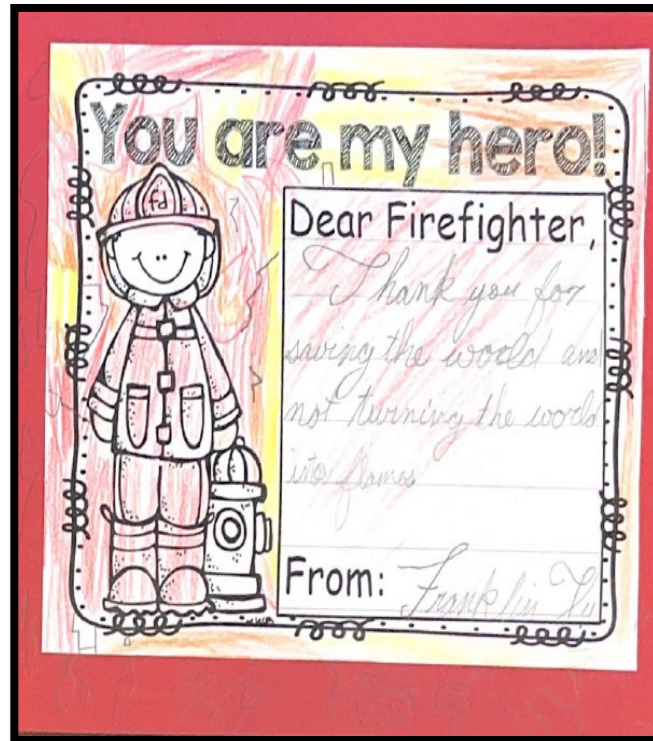 You are my hero!
fd
Dear Firefighter,
Thank you for
saving the world and
not turning the world
into flames
From: Franklin